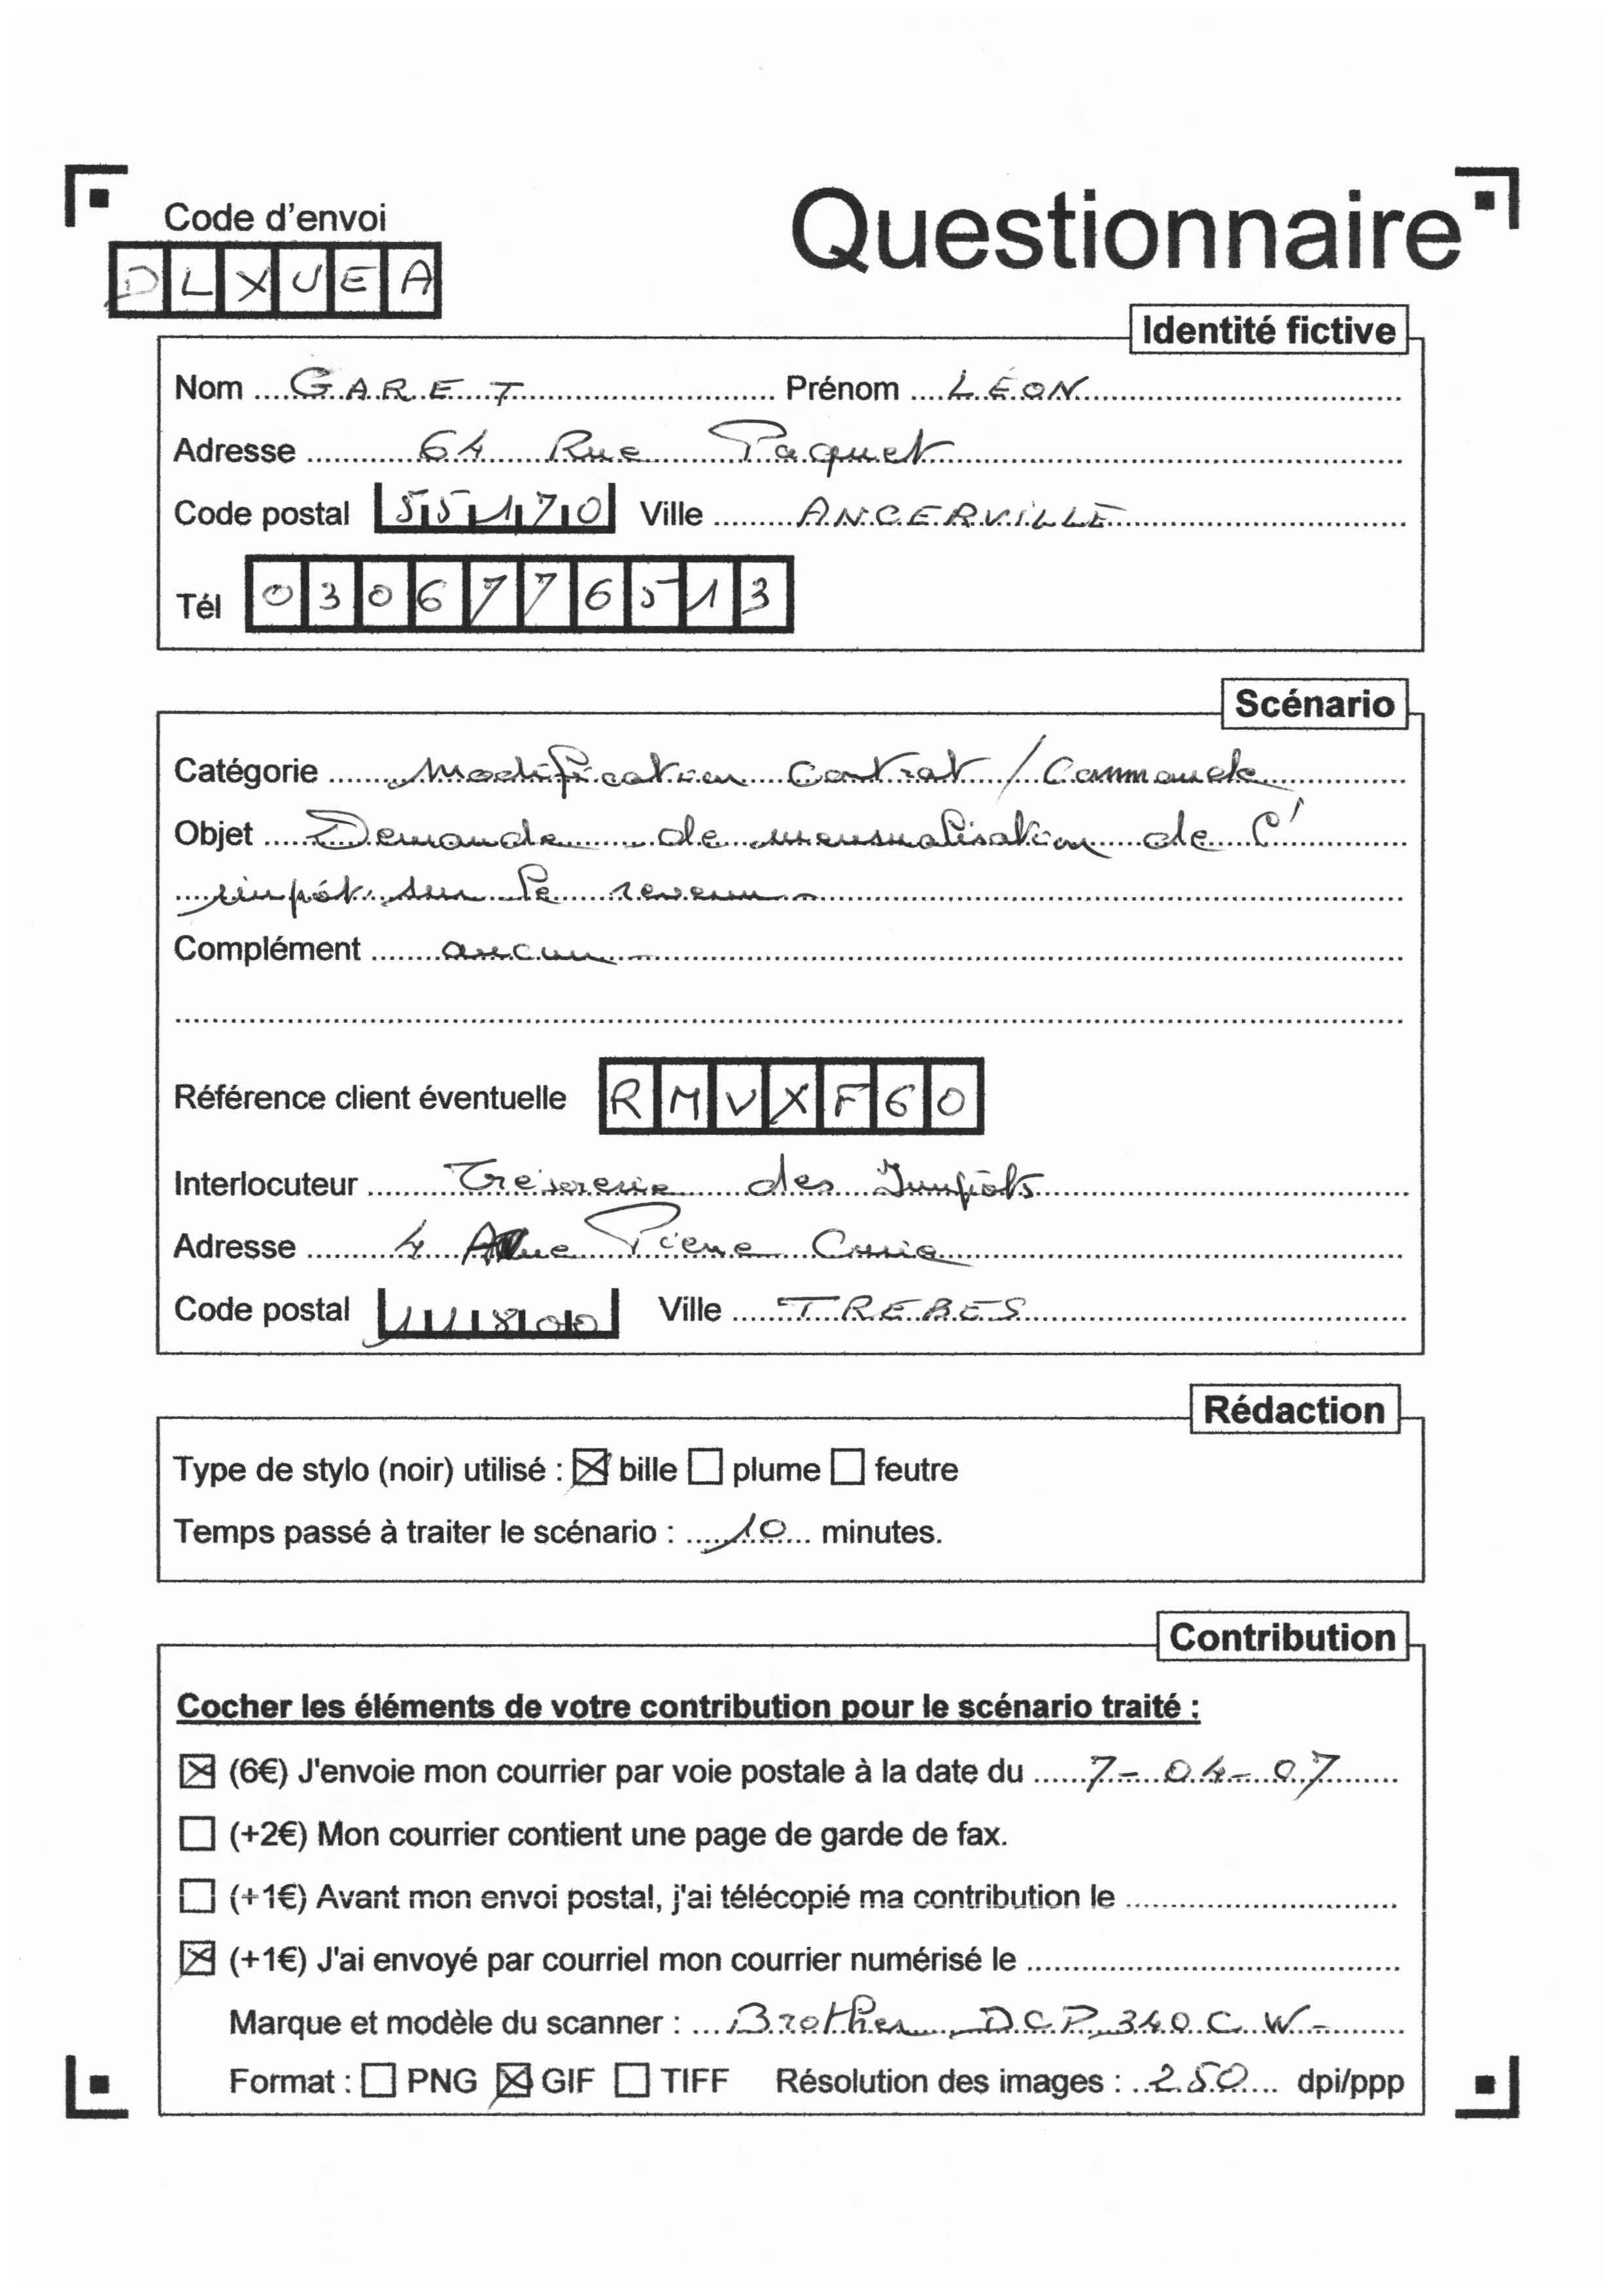 Code d'envoi
Questionnaire
DLXUEA
Identité fictive
Nom GARET Prénom LÉON
Adresse 64 Rue Paquet
Code postal 55170 Ville ANCERVILLE
Tél 0306776513
Scénario
Catégorie Modification Contrat / Commande
Objet Demande de mensualisation de l'
impôt sur le revenu
Complément aucun
Référence client éventuelle RMVXF60
Interlocuteur Trésorerie des Impôts
Adresse 4 Pierre Curie
Code postal 11800 Ville TREBES
Rédaction
Type de stylo (noir) utilisé : bille plume feutre
Temps passé à traiter le scénario : 10 minutes.
Contribution
Cocher les éléments de votre contribution pour le scénario traité :
(6€) J'envoie mon courrier par voie postale à la date du 7-04-07
(+2€) Mon courrier contient une page de garde de fax.
(+1€) Avant mon envoi postal, j'ai télécopié ma contribution le
(+1€) J'ai envoyé par courriel mon courrier numérisé le
Marque et modèle du scanner : Brother DCP 340 CW-
Format : PNG GIF TIFF Résolution des images : 250 dpi/ppp